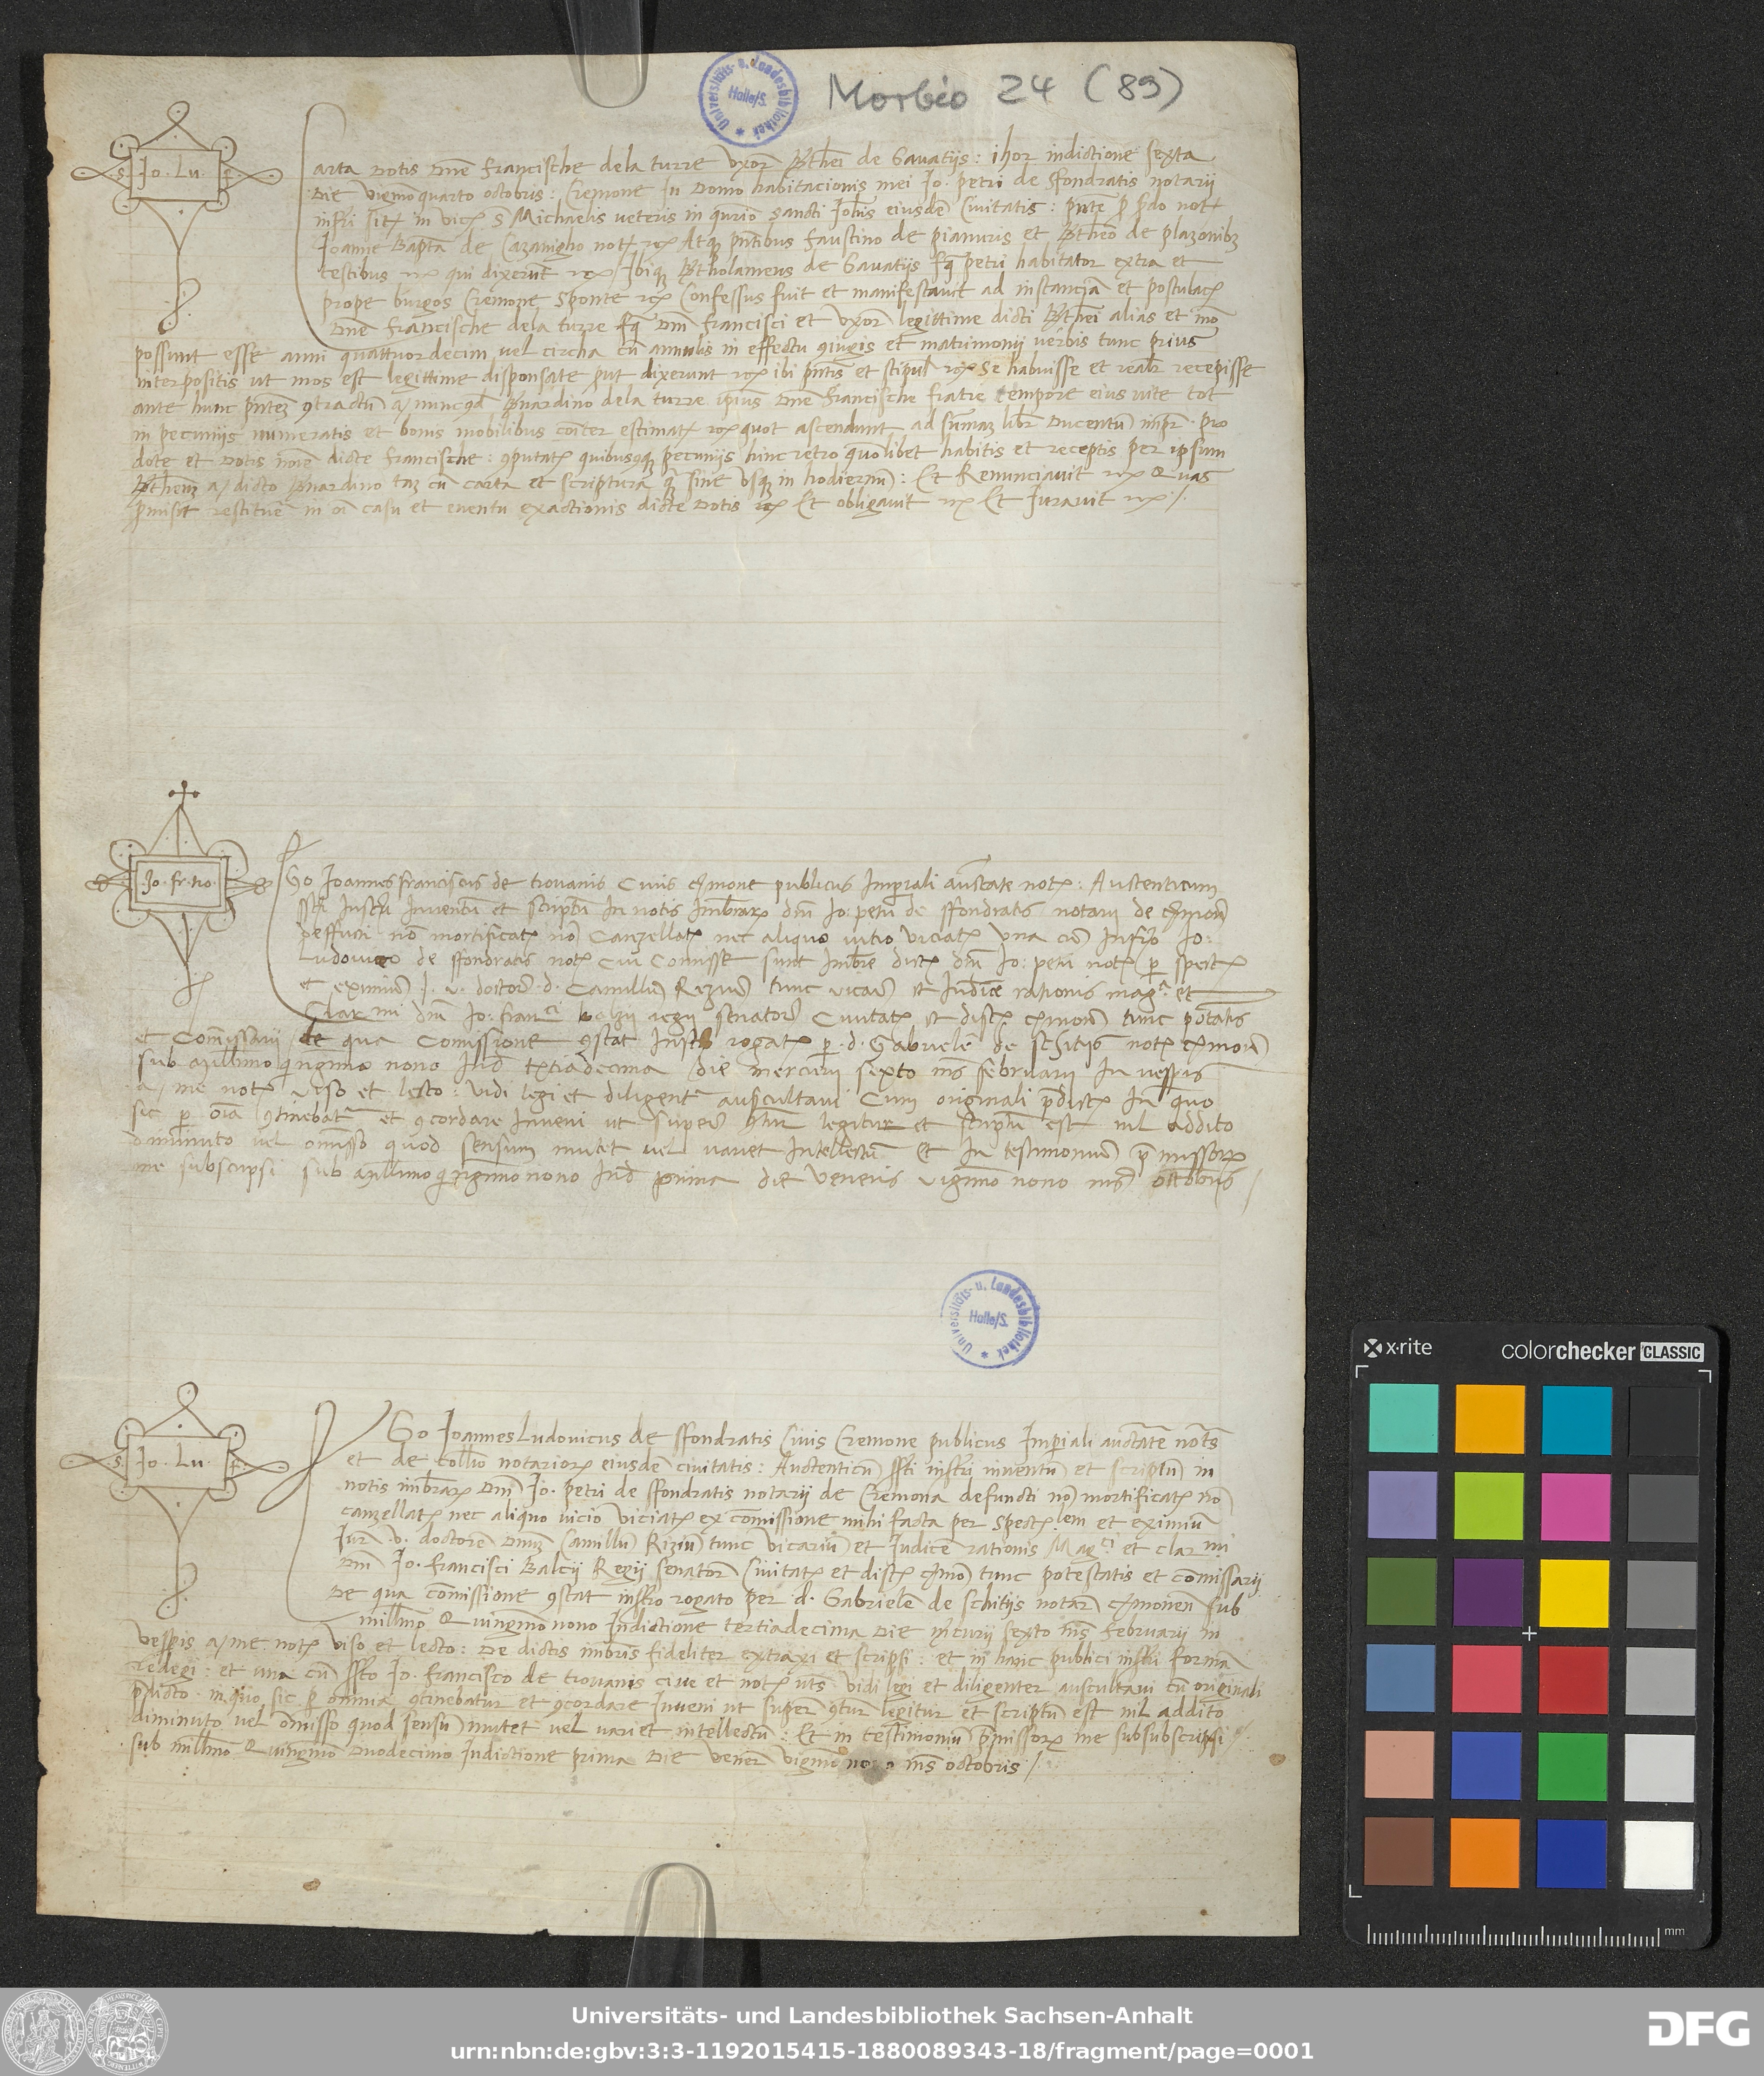 Morbio 24 (89)
Universitäts- u. Landesbibliothek Halle/S.
S. Jo. Lu. f.
Carta Dotis Dne francische dela turre uxor Bthei de Gavatijs: ihor indictione sexta
Die viemoquarto octobris: Cremone in Domo habitacionis mei Jo. petri de Sfondratis notarij
infri sit in vic S Michaelis veteris in qurio Sancti Johis eiusde Civitatis: pnte p pdo not
Joanne Bapta de Cazanigho not Atq pntibus faustino de pianuris et Btheo de plazonibz
testibus qui dixerut Ibiq Btholameus de Gavatijs fq petri habitator extra et
prope burgos Cremone Sponte Confessus fuit et manifestavit ad instancia et postulac
Dne francische dela turre fq Dni francisci et uxor legittime dicti Bthei alias et mo
possunt esse anni quattuordecim vel circha cu annulis in effectu 9iugis et matrimonij verbis tunc prius
interpositis ut mos est legittime disponsate put dixerunt ibi pntis et stipul Se habuisse et realr recepisse
ante hunc pntez 9tractu a nuncqd Bnardino dela turre ipius Dne francische fratre tempore eius vite tot
in pecunijs numeratis et bonis mobilibus coiter estimat quot ascendunt ad sumaz libr Ducentu impr pro
dote et Dotis noie dicte francische: 9putat quibuscq pecunijs hinc retro quolibet habitis et receptis per ipsum
Btheuz a dicto Bnardino taz cu carta et scriptura q sine usq in hodiernu: Et Renunciavit Quas
pmisit restitue in oi casu et eventu exactionis dicte Dotis Et obligavit Et Juravit
Jo. fr. tro.
EGo Joannes franciscus de trovanis Civis cmone publicus Imperiali auctate not: Auctenticum
Instri Inventu et scriptu In notis Imbrar dni Jo: petri de sfondratis notarij de cmona
deffuncti no mortificat no Canzellat nec aliquo vitio viciat una cu Infrto Jo:
Ludovico de sfondratis not Cui Comisse sunt Imbre dict dni Jo: petri not p spect
et eximiu J. u. doctore d. Camillu Reziu tunc vicariu et Iudice rationis mag. et
Clar mi dni Jo: franci balzij regij senatoris Civitat et dist cmone tunc potatis
et Comissarij de qua Comissione 9stat Instro rogat p d. Gabriele de Schitijs not cmone
sub millimo qingmo nono Ind tertiadecima die mercurij sexto mes februarij In vespris
a me not viso et lecto: vidi legi et diligent auscultavi Cum originali pdict In quo
sic p oia 9tinebat et 9cordare Inveni ut super legitur et scriptu est nil addito
diminuto vel omisso quod sensum mutet vel variet Intellectu Et In testimoniu pmissor
me subscripsi sub millimo qingmo nono Ind prima die veneris vigmo nono mes octobris
Universitäts- u. Landesbibliothek Halle/S.
S. Jo. Lu. f.
EGo Joannes Ludovicus de sfondratis Civis Cremone publicus Imperiali auctate nots
et de collio notarior eiusde civitatis: Auctenticu sti instri inventu et scriptu in
notis imbrar Dni Jo. petri de sfondratis notarij de Cremona defuncti no mortificat no
canzellat nec aliquo vicio viciat ex comissione mihi facta per Spect lem et eximiu
Jur. v. doctore Dnuz Camillu Riziu tunc vicariu et Judice rationis Mag ci et clar mi
Dni Jo. francisci Balcij Regij Senator Civitat et dist cmo tunc potestatis et comissarij
De qua comissione 9stat instro rogato per d. Gabriele de schitijs notar cmonen sub
millimo Quingmo nono Indictione tertiadecima Die mcurij sexto ms februarij in
vespis a me not viso et lecto: De dictis imbris fideliter extraxi et scripsi: et in hanc publici instri forma
redegi: et una cu Jo. francisco de trovanis cive et not uts vidi legi et diligenter auscultavi cu originali
pdicto in quo sic p omnia 9tinebatur et 9cordare Inveni ut super 9tur legitur et scriptu est nil addito
diminuto vel omisso quod sensu mutet vel variet intellectu: Et in testimoniu pmissor me subsubscripsi
sub millimo Quingmo Duodecimo Indictione prima Die vener vigmo nono ms octobris
x·rite colorchecker CLASSIC
mm
Universitäts- und Landesbibliothek Sachsen-Anhalt
urn:nbn:de:gbv:3:3-1192015415-1880089343-18/fragment/page=0001
DFG